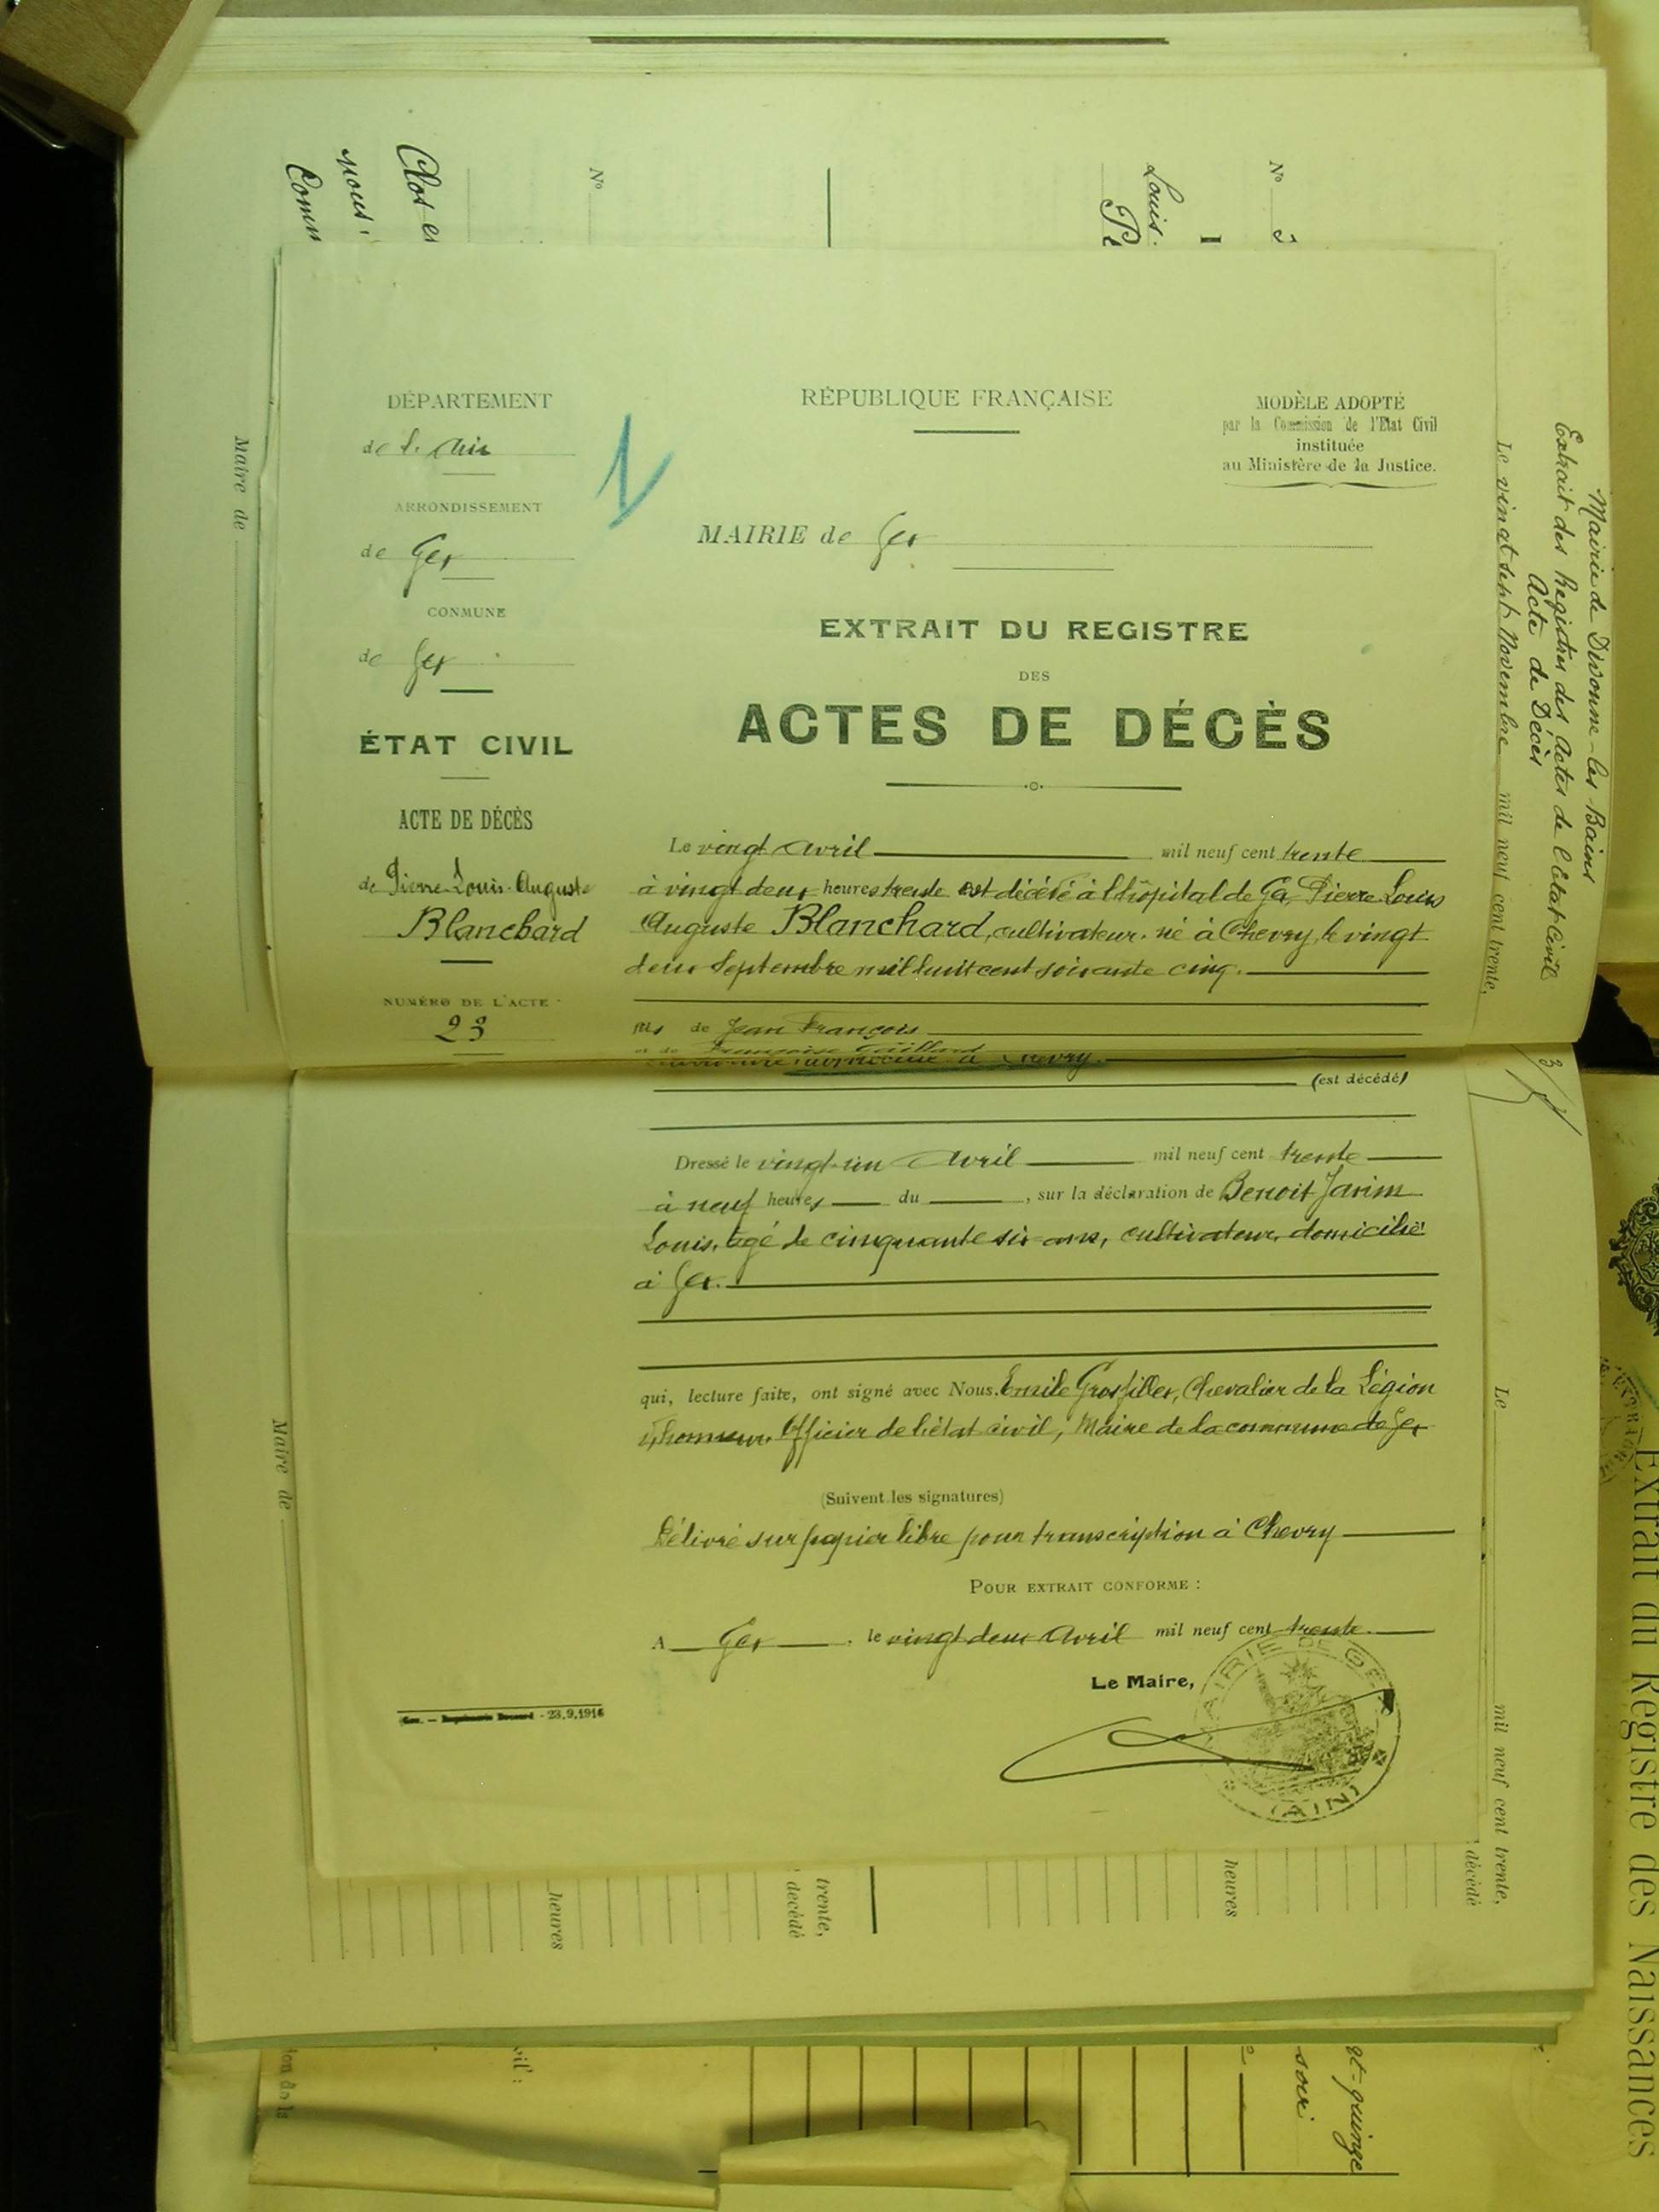 DÉPARTEMENT
de l'Ain
ARRONDISSEMENT
de Gex
COMMUNE
de Gex
ÉTAT CIVIL
ACTE DE DÉCÈS
de Pierre-Louis-Auguste
Blanchard
NUMÉRO DE L'ACTE
23
RÉPUBLIQUE FRANÇAISE
MODÈLE ADOPTÉ
par la Commission de l'Etat Civil
instituée
au Ministère de la Justice.
MAIRIE de Gex
EXTRAIT DU REGISTRE
DES
ACTES DE DÉCÈS
Le vingt Avril mil neuf cent trente
à vingt deux heures trente est décédé à l'hôpital de Gex Pierre Louis
Auguste Blanchard, cultivateur, né à Chevry, le vingt
deux Septembre mil huit cent soixante cinq.
fils de Jean François
et de Françoise
Chevry.
(est décédé)
Dressé le vingt-un Avril mil neuf cent trente
à neuf heures du , sur la déclaration de Benoit
Louis, âgé de cinquante six ans, cultivateur, domicilié
à Gex.
qui, lecture faite, ont signé avec Nous. Emile Grosfiller, Chevalier de la Légion
d'honneur. Officier de l'état civil, Maire de la commune de Gex
(Suivent les signatures)
Délivré sur papier libre pour transcription à Chevry
POUR EXTRAIT CONFORME :
A Gex , le vingt deux Avril mil neuf cent trente.
Le Maire,
MAIRIE DE GEX
(AIN)
23.9.1916
Mairie de Divonne-les-Bains
Extrait des Registres des Actes de l'Etat Civil
Acte de Décès
Le vingt sept Novembre mil neuf cent trente,
Le mil neuf cent trente,
décédé
heures
trente,
décédé
heures
Nº
Louis.
Nº
Clos et
nous,
Comm
Maire de
Maire de
Extrait du Registre des Naissances